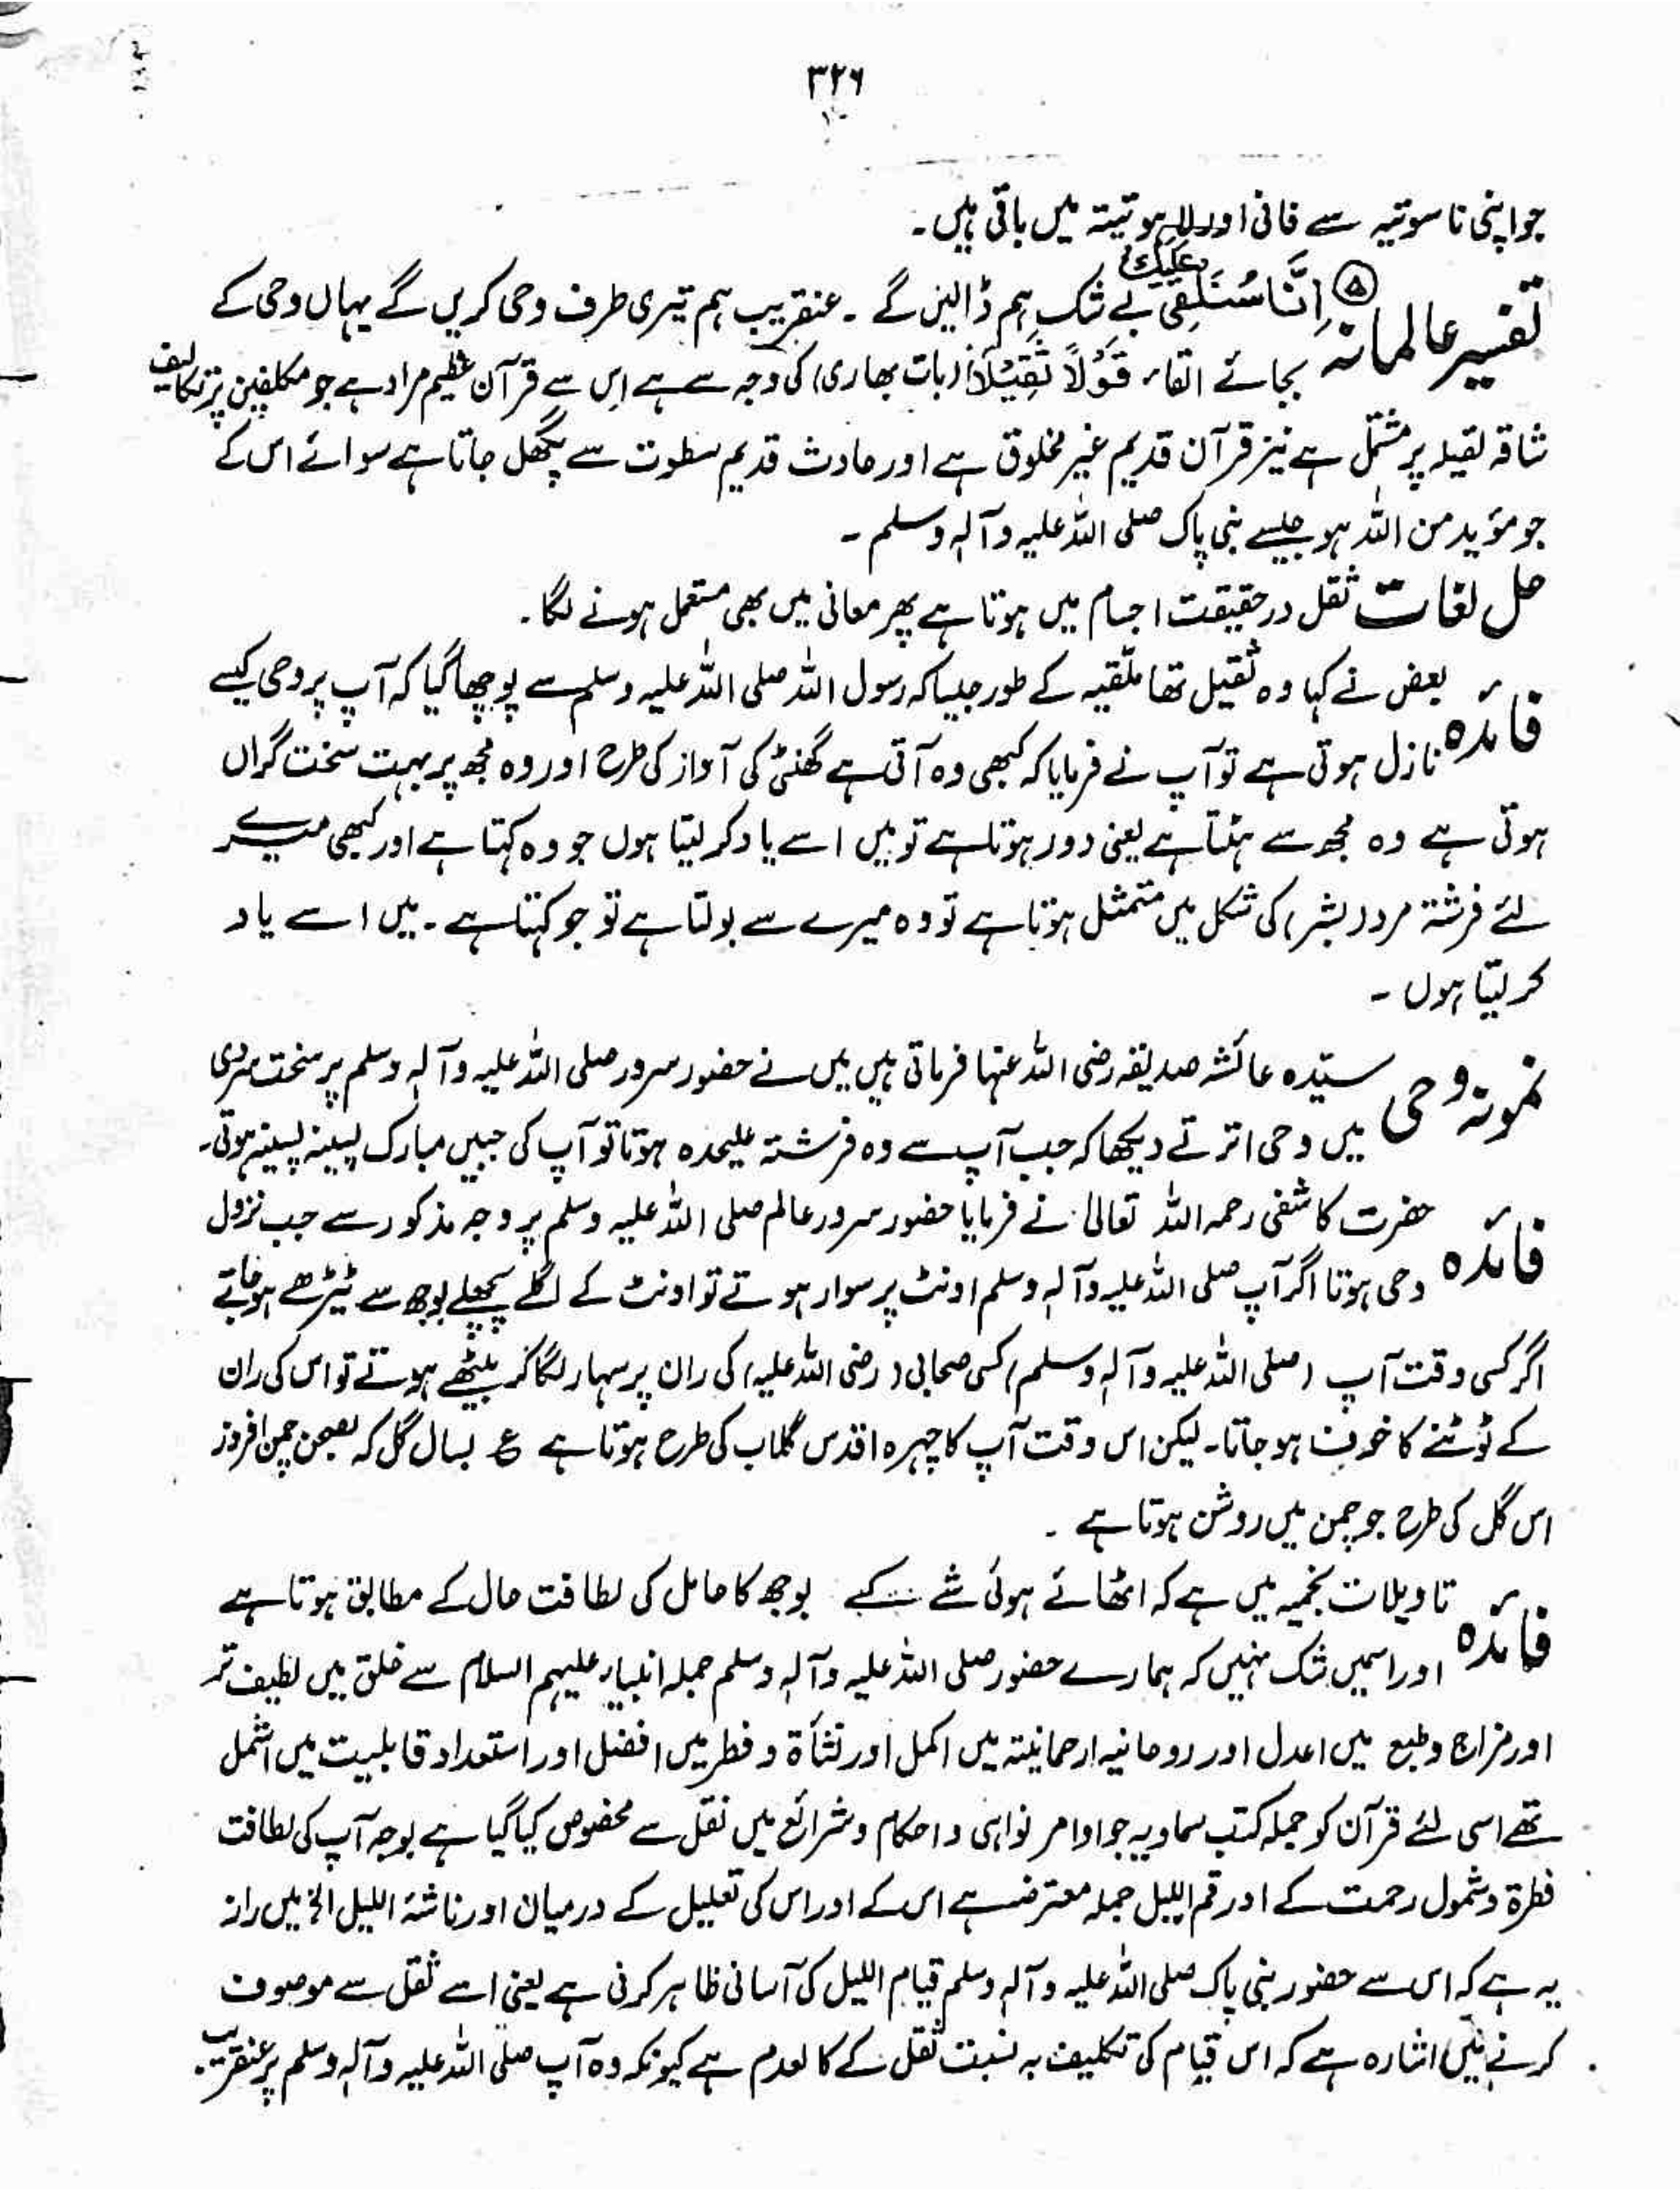 ۳۲۶
جو اپنی ناسوتیہ سے فانی اور لاہوتیتہ میں باقی ہیں۔
تفسیر عالمانہ ⑤ اِنَّا سَنُلْقِیْ عَلَیْكَ بے شک ہم ڈالیں گے ۔ عنقریب ہم تیری طرف وحی کریں گے یہاں وحی کے
بجائے القاء قَوْلًا ثَقِیْلًا (بات بھاری) کی وجہ سے ہے اس سے قرآن عظیم مراد ہے جو مکلفین پر تکالیف
شاقہ ثقیلہ پر مشتمل ہے نیز قرآن قدیم غیر مخلوق ہے اور حادث قدیم سطوت سے پگھل جاتا ہے سوائے اس کے
جو مؤید من اللہ ہو جیسے نبی پاک صلی اللہ علیہ وآلہ وسلم ۔
حل لغات ثقل درحقیقت اجسام میں ہوتا ہے پھر معانی میں بھی مستعمل ہونے لگا۔
فائدہ بعض نے کہا وہ ثقیل تھا ملقیہ کے طور جیسا کہ رسول اللہ صلی اللہ علیہ وسلم سے پوچھا گیا کہ آپ پر وحی کیسے
نازل ہوتی ہے تو آپ نے فرمایا کہ کبھی وہ آتی ہے گھنٹی کی آواز کی طرح اور وہ مجھ پر بہت سخت گراں
ہوتی ہے وہ مجھ سے ہٹتا ہے یعنی دور ہوتا ہے تو میں اسے یاد کر لیتا ہوں جو وہ کہتا ہے اور کبھی میرے
لئے فرشتہ مرد (بشر) کی شکل میں متمثل ہوتا ہے تو وہ میرے سے بولتا ہے تو جو کہتا ہے ۔ میں اسے یاد
کر لیتا ہوں ۔
نمونہ وحی سیّدہ عائشہ صدیقہ رضی اللہ عنہا فرماتی ہیں میں نے حضور سرور صلی اللہ علیہ وآلہ وسلم پر سخت سردی
میں وحی اترتے دیکھا کہ جب آپ سے وہ فرشتہ علیحدہ ہوتا تو آپ کی جبیں مبارک پسینہ پسینہ ہوتی۔
فائدہ حضرت کاشفی رحمہ اللہ تعالیٰ نے فرمایا حضور سرور عالم صلی اللہ علیہ وسلم پر وجہ مذکور سے جب نزول
وحی ہوتا اگر آپ صلی اللہ علیہ وآلہ وسلم اونٹ پر سوار ہوتے تو اونٹ کے اگلے پچھلے بوجھ سے ٹیڑھے ہو جاتے
اگر کسی وقت آپ (صلی اللہ علیہ وآلہ وسلم) کسی صحابی (رضی اللہ علیہ) کی ران پر سہار لگا کر بیٹھے ہوتے تو اس کی ران
کے ٹوٹنے کا خوف ہو جاتا۔ لیکن اس وقت آپ کا چہرہ اقدس گلاب کی طرح ہوتا ہے ع بسال گل کہ بصحن چمن افروز
اس گل کی طرح جو چمن میں روشن ہوتا ہے ۔
فائدہ تاویلات نجمیہ میں ہے کہ اٹھائے ہوئی شے کے بوجھ کا حامل کی لطافت حال کے مطابق ہوتا ہے
اور اسمیں شک نہیں کہ ہمارے حضور صلی اللہ علیہ وآلہ وسلم جملہ انبیاء علیہم السلام سے خلق میں لطیف تر
اور مزاج و طبع میں اعدل اور روحانیہ ارحمانیتہ میں اکمل اور نشأۃ و فطر میں افضل اور استعداد قابلیت میں اشمل
تھے اسی لئے قرآن کو جملہ کتب سماویہ جو اوامر نواہی و احکام و شرائع میں ثقل سے مخصوص کیا گیا ہے بوجہ آپ کی لطافت
فطرۃ و شمول رحمت کے اور قم اللیل جملہ معترضہ ہے اس کے اور اس کی تعلیل کے درمیان اور ناشئۃ اللیل الخ میں راز
یہ ہے کہ اس سے حضور نبی پاک صلی اللہ علیہ وآلہ وسلم قیام اللیل کی آسانی ظاہر کرنی ہے یعنی اسے ثقل سے موصوف
کرنے میں اشارہ ہے کہ اس قیام کی تکلیف بہ نسبت ثقل کے کالعدم ہے کیونکہ وہ آپ صلی اللہ علیہ وآلہ وسلم پر عنقریب